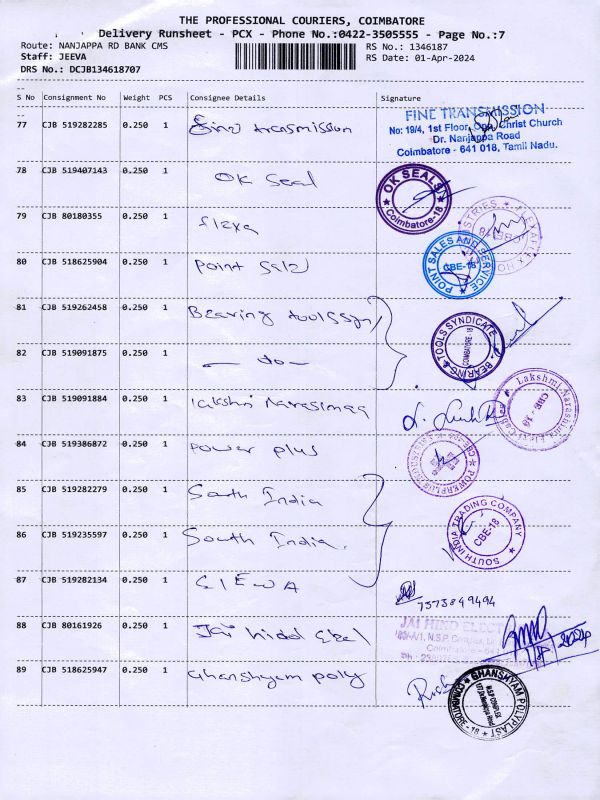 THE PROFESSIONAL COURIERS, COIMBATORE
Delivery Runsheet - PCX - Phone No.:0422-3505555 - Page No.:7
Route: NANJAPPA RD BANK CMS
RS No.: 1346187
Staff: JEEVA
RS Date: 01-Apr-2024
DRS No.: DCJB134618707
S No Consignment No Weight PCS Consignee Details Signature
77 CJB 519282285 0.250 1 Fine transmission
FINE TRANSMISSION
No: 19/4, 1st Floor, Opp. Christ Church
Dr. Nanjappa Road
Coimbatore - 641 018, Tamil Nadu.
78 CJB 519407143 0.250 1 OK Seal
OK SEALS
Coimbatore-18
79 CJB 80180355 0.250 1 flexa
80 CJB 518625904 0.250 1 Point Sale
POINT SALES AND SERVICE
CBE-18
81 CJB 519262458 0.250 1 Bearing toolssyn
BEARING & TOOLS SYNDICATE
COIMBATORE - 18
82 CJB 519091875 0.250 1 — do —
83 CJB 519091884 0.250 1 lakshmi Narasimaa
CBE - 18
84 CJB 519386872 0.250 1 Power plus
85 CJB 519282279 0.250 1 South India
86 CJB 519235597 0.250 1 South India.
SOUTH INDIA TRADING COMPANY
CBE-18
87 CJB 519282134 0.250 1 SIEWA
7373849494
88 CJB 80161926 0.250 1 Jai hind Elel
JAI HIND ELECT
N.S.P. Complex
Coimbatore - 641
89 CJB 518625947 0.250 1 Ghanshyam poly
GHANSHYAM POLYPLAST
N.S.P COMPLEX
COIMBATORE - 18